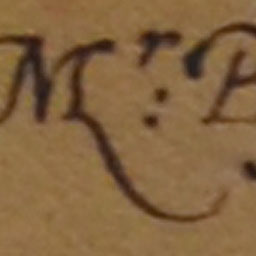 Mr: B